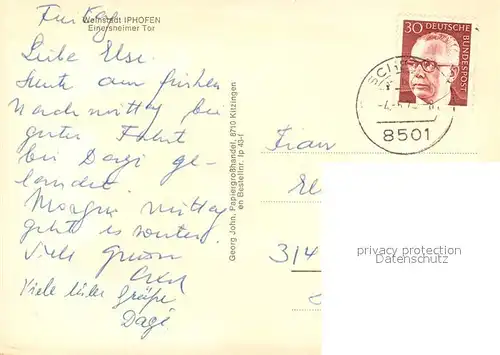 Weinstadt IPHOFEN
Einersheimer Tor
Liebe Else.
Heute am frühen
Nachmittag bei
guter Fahrt
bei Dagi ge-
landet.
Morgen mittag
geht es weiter.
Viele Grüsse
Viele liebe Grüße
Dagi
Georg John, Papiergroßhandel, 8710 Kitzingen
en Bestellnr. Ip 45-f
30 DEUTSCHE BUNDESPOST
8501
Frau
El
314
privacy protection
Datenschutz